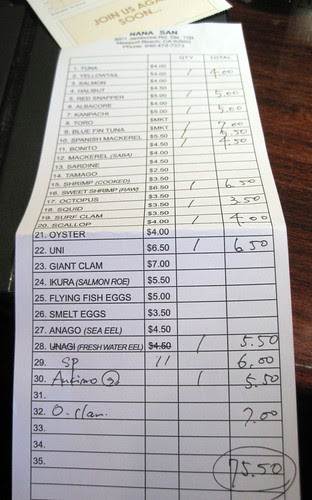 JOIN US AGA
SOON...
NANA SAN
3601 Jamboree Rd. Ste. 15B
Newport Beach, CA 92660
Phone: 949-474-7373
QTY TOTAL
1. TUNA $4.00
2. YELLOWTAIL $4.00 / 4.00
3. SALMON $4.00
4. HALIBUT $4.00
5. RED SNAPPER $5.00 / 5.00
6. ALBACORE $4.00
7. KANPACHI $5.00 / 5.00
8. TORO $MKT / 7.00
9. BLUE FIN TUNA $MKT / 6.50
10. SPANISH MACKEREL $4.50 / 4.50
11. BONITO
12. MACKEREL (SABA)
13. SARDINE $3.50
14. TAMAGO $2.50
15. SHRIMP (COOKED) $3.50
16. SWEET SHRIMP (RAW) $6.50 / 6.50
17. OCTOPUS $3.50
18. SQUID $3.50 / 3.50
19. SURF CLAM $3.50
20. SCALLOP $4.00 / 4.00
21. OYSTER $4.00
22. UNI $6.50 / 6.50
23. GIANT CLAM $7.00
24. IKURA (SALMON ROE) $5.50
25. FLYING FISH EGGS $5.00
26. SMELT EGGS $3.50
27. ANAGO (SEA EEL) $4.50
28. UNAGI (FRESH WATER EEL) $4.50 / 5.50
29. SP 11 6.00
30. Ankimo / 5.50
31.
32. O. clam 7.00
33.
34.
35. 75.50